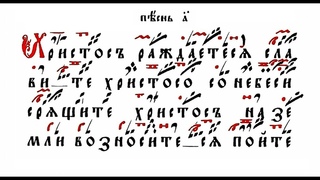 пѣснь а҃
Христосъ раждаетеся сла
ви_те христосо со небеси
срящите христосъ на зе
мли возносите_ся пойте